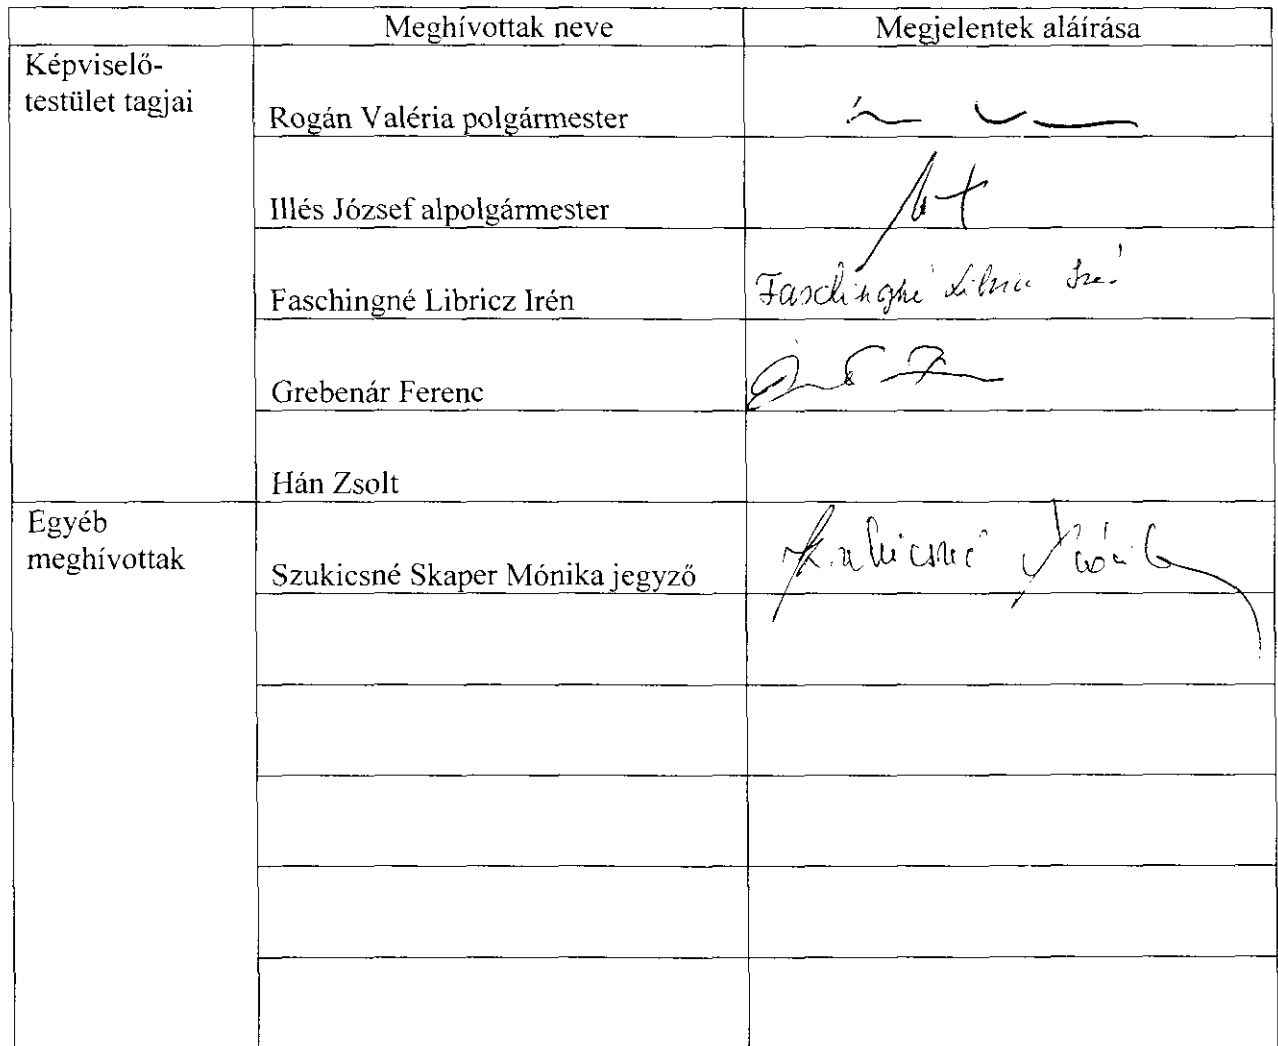 Meghívottak neve
Megjelentek aláírása
Képviselő-
testület tagjai
Rogán Valéria polgármester
Illés József alpolgármester
Faschingné Libricz Irén
Faschingné
Grebenár Ferenc
Hán Zsolt
Egyéb
meghívottak
Szukicsné Skaper Mónika jegyző